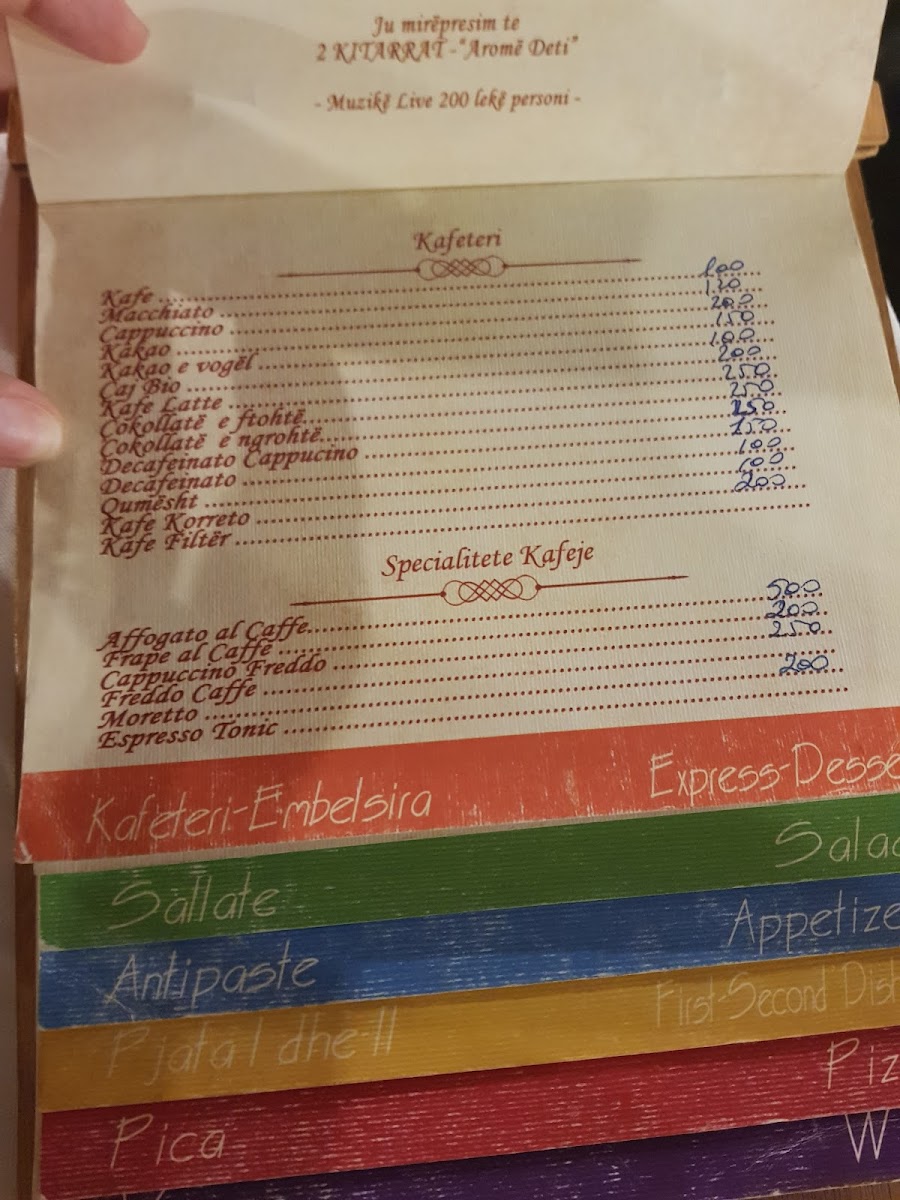 Ju mirëpresim te
2 KITARRAT - "Aromë Deti"
- Muzikë Live 200 lekë personi -
Kafeteri
Kafe 100
Macchiato 120
Cappuccino 200
Kakao 150
Kakao e vogël 100
Çaj Bio 200
Kafe Latte 250
Çokollatë e ftohtë 250
Çokollatë e ngrohtë 250
Decafeinato Cappucino 150
Decafeinato 100
Qumësht 100
Kafe Korreto 200
Kafe Filtër
Specialitete Kafeje
Affogato al Caffe 500
Frape al Caffe 200
Cappuccino Freddo 250
Freddo Caffe
Moretto 200
Espresso Tonic
Kafeteri-Embelsira Express-Desse
Sallate Salad
Antipaste Appetize
Pjata I dhe II First-Second Dish
Pica Piz
W